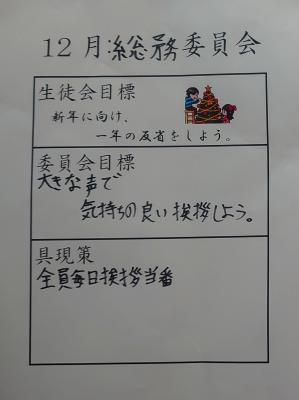 12月:総務委員会
生徒会目標
新年に向け、
一年の反省をしよう。
委員会目標
大きな声で
気持ちの良い挨拶しよう。
具現策
全員毎日挨拶当番